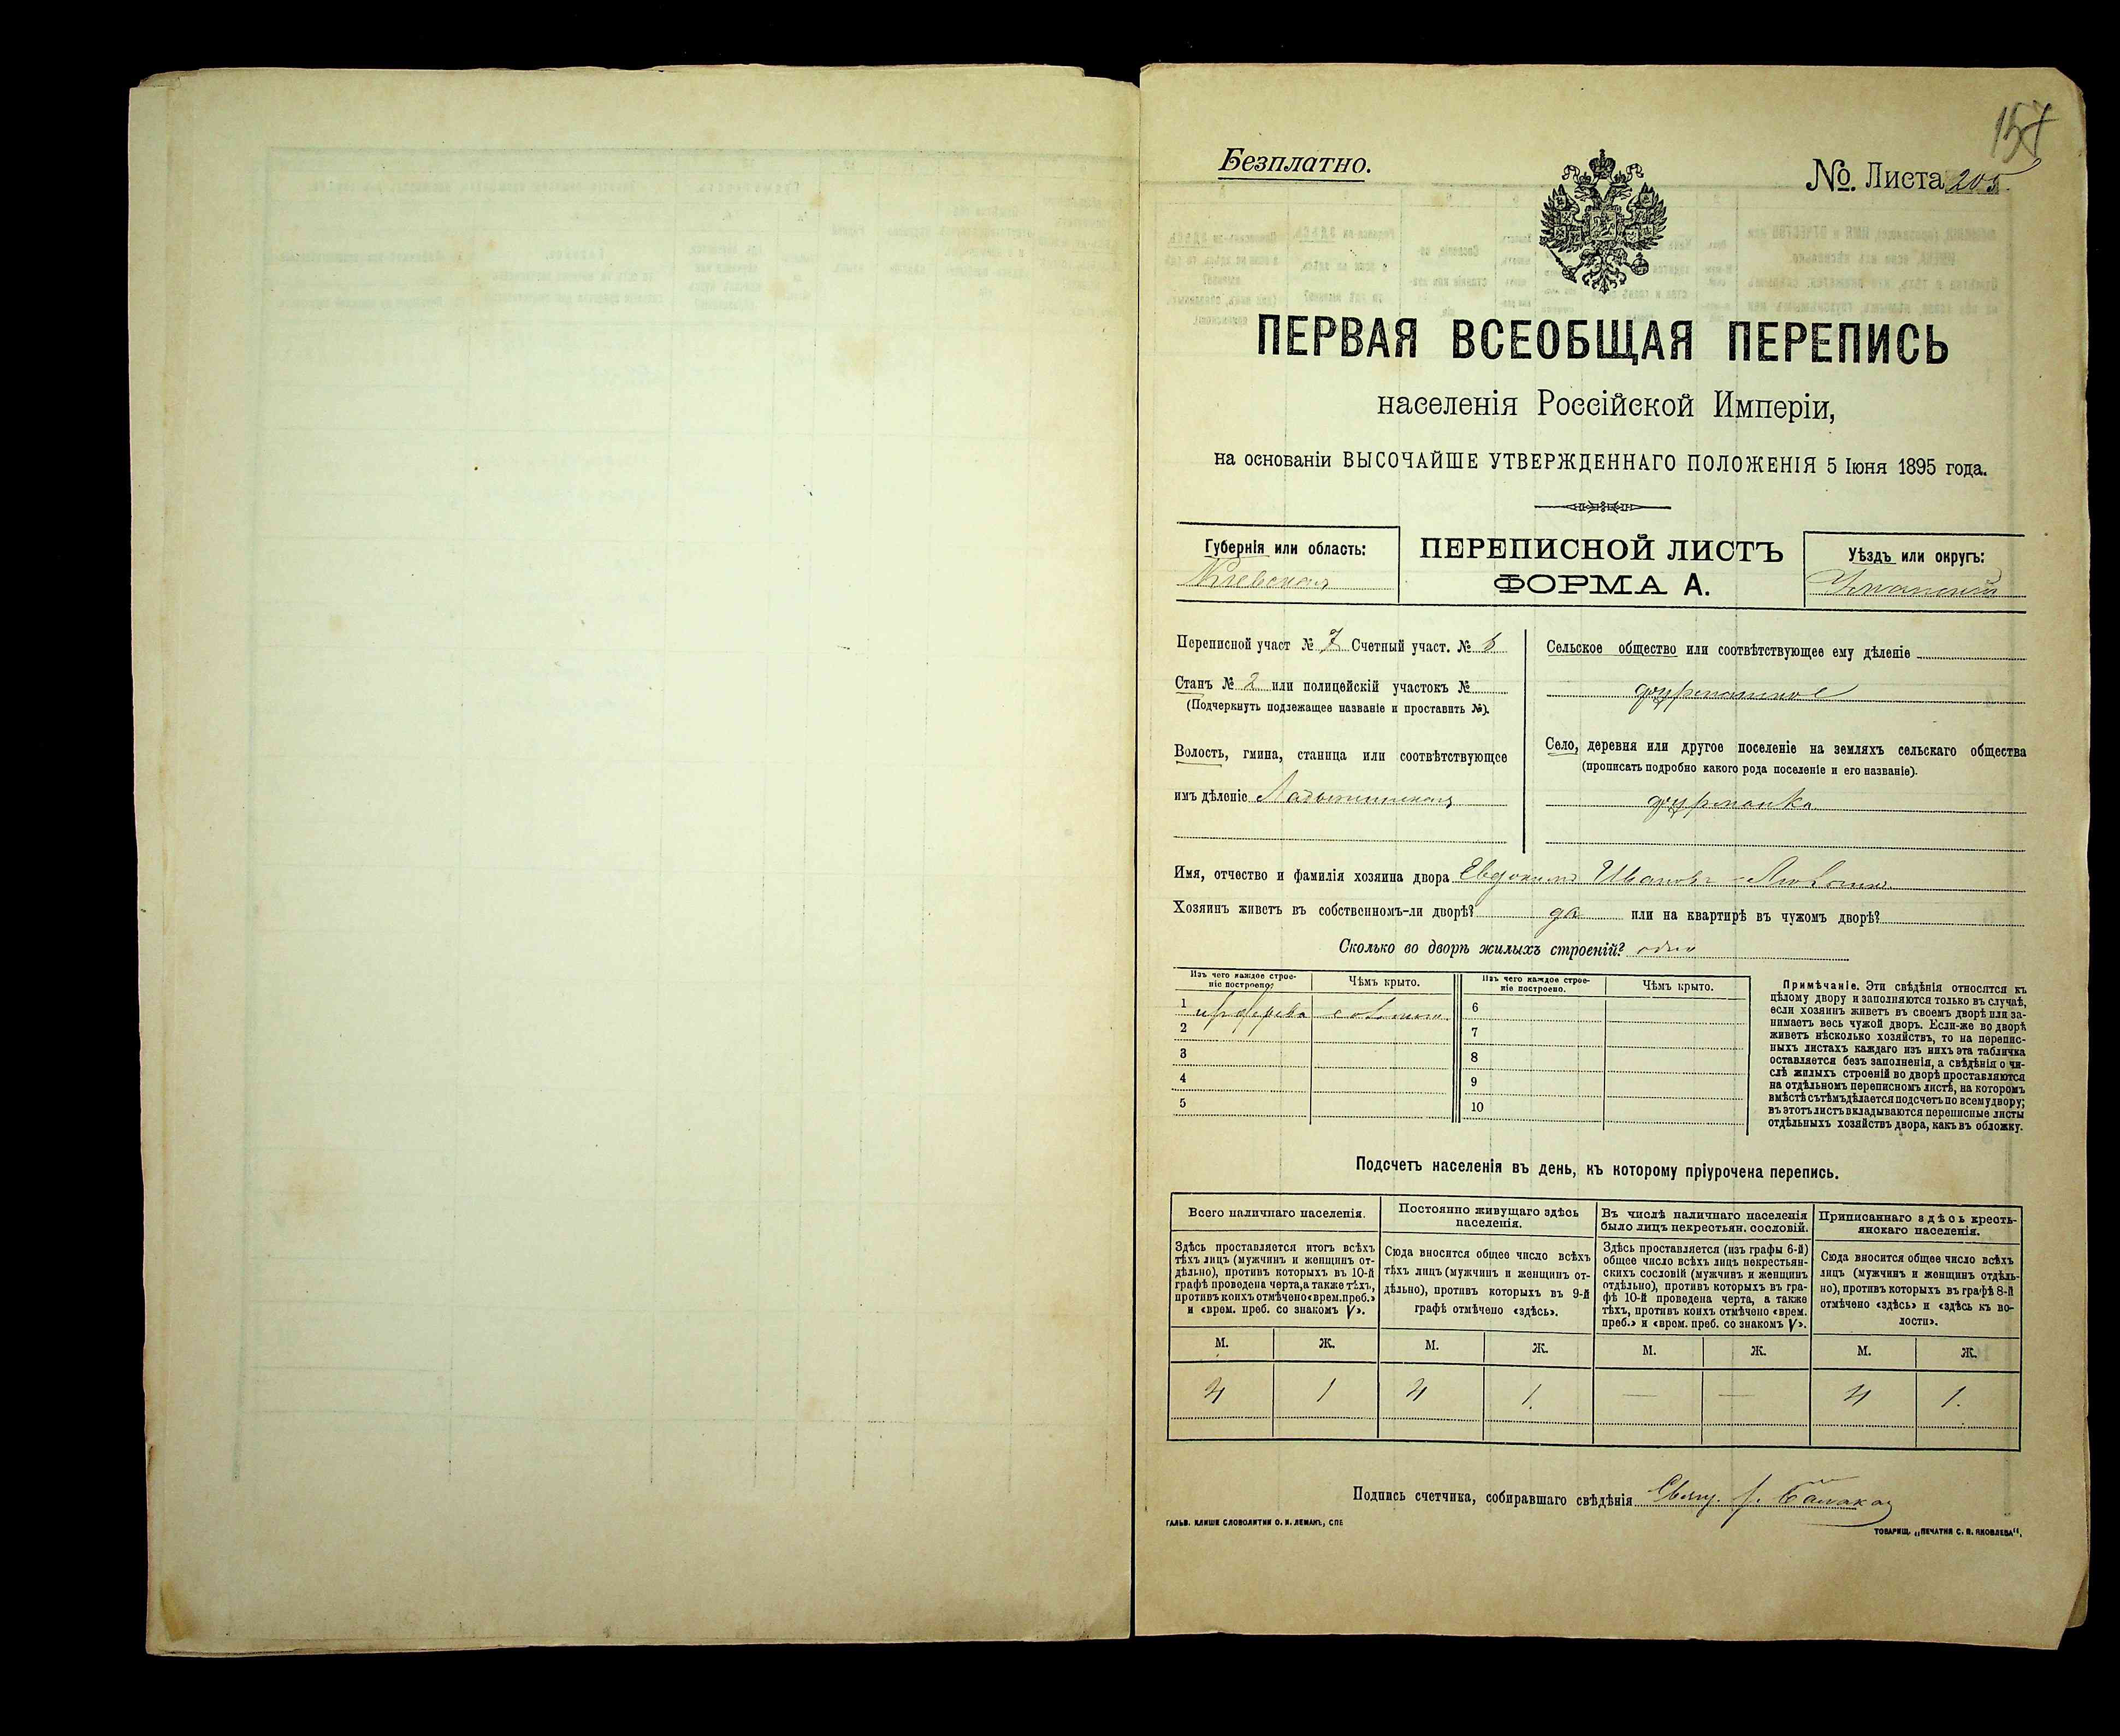 157
Безплатно.
№. Листа 205.
ПЕРВАЯ ВСЕОБЩАЯ ПЕРЕПИСЬ
населенія Россійской Имперіи,
на основаніи ВЫСОЧАЙШЕ УТВЕРЖДЕННАГО ПОЛОЖЕНІЯ 5 Іюня 1895 года.
Губернія или область:
Кіевская
ПЕРЕПИСНОЙ ЛИСТЪ
ФОРМА А.
Уѣздъ или округъ:
Уманскій
Переписной участ № 7 Счетный участ. №
Станъ № 2 или полицейскій участокъ №
(Подчеркнуть подлежащее названіе и проставить №).
Волость, гмина, станица или соотвѣтствующее
имъ дѣленіе Ладыжинская
Сельское общество или соотвѣтствующее ему дѣленіе
фурманское
Село, деревня или другое поселеніе на земляхъ сельскаго общества
(прописать подробно какого рода поселеніе и его названіе).
фурманка
Имя, отчество и фамилія хозяина двора Евдокимъ Ивановъ
Хозяинъ живетъ въ собственномъ-ли дворѣ? да или на квартирѣ въ чужомъ дворѣ?
Сколько во дворѣ жилыхъ строеній? одно
Изъ чего каждое строе-
ніе построено.
Чѣмъ крыто.
Изъ чего каждое строе-
ніе построено.
Чѣмъ крыто.
1 изъ дерева соломою
2
3
4
5
6
7
8
9
10
Примѣчаніе. Эти свѣдѣнія относятся къ
цѣлому двору и заполняются только въ случаѣ,
если хозяинъ живетъ въ своемъ дворѣ или за-
нимаетъ весь чужой дворъ. Если-же во дворѣ
живетъ нѣсколько хозяйствъ, то на перепис-
ныхъ листахъ каждаго изъ нихъ эта табличка
оставляется безъ заполненія, а свѣдѣнія о чи-
слѣ жилыхъ строеній во дворѣ проставляются
на отдѣльномъ переписномъ листѣ, на которомъ
вмѣстѣ съ тѣмъ дѣлается подсчетъ по всему двору;
въ этотъ листъ вкладываются переписные листы
отдѣльныхъ хозяйствъ двора, какъ въ обложку.
Подсчетъ населенія въ день, къ которому пріурочена перепись.
Всего наличнаго населенія.
Здѣсь проставляется итогъ всѣхъ
тѣхъ лицъ (мужчинъ и женщинъ от-
дѣльно), противъ которыхъ въ 10-й
графѣ проведена черта, а также тѣхъ,
противъ коихъ отмѣчено «врем. преб.»
и «врем. преб. со знакомъ V».
Постоянно живущаго здѣсь
населенія.
Сюда вносится общее число всѣхъ
тѣхъ лицъ (мужчинъ и женщинъ от-
дѣльно), противъ которыхъ въ 9-й
графѣ отмѣчено «здѣсь».
Въ числѣ наличнаго населенія
было лицъ некрестьян. сословій.
Здѣсь проставляется (изъ графы 6-й)
общее число всѣхъ лицъ некрестьян-
скихъ сословій (мужчинъ и женщинъ
отдѣльно), противъ которыхъ въ гра-
фѣ 10-й проведена черта, а также
тѣхъ, противъ коихъ отмѣчено «врем.
преб.» и «врем. преб. со знакомъ V».
Приписаннаго здѣсь кресть-
янскаго населенія.
Сюда вносится общее число всѣхъ
лицъ (мужчинъ и женщинъ отдѣль-
но), противъ которыхъ въ графѣ 8-й
отмѣчено «здѣсь» и «здѣсь къ во-
лости».
М. Ж. М. Ж. М. Ж. М. Ж.
4 1 4 1. — — 4 1.
Подпись счетчика, собиравшаго свѣдѣнія
ГАЛЬВ. КЛИШЕ СЛОВОЛИТНИ О. И. ЛЕМАНЪ, СПБ
ТОВАРИЩ. „ПЕЧАТНЯ С. П. ЯКОВЛЕВА“.